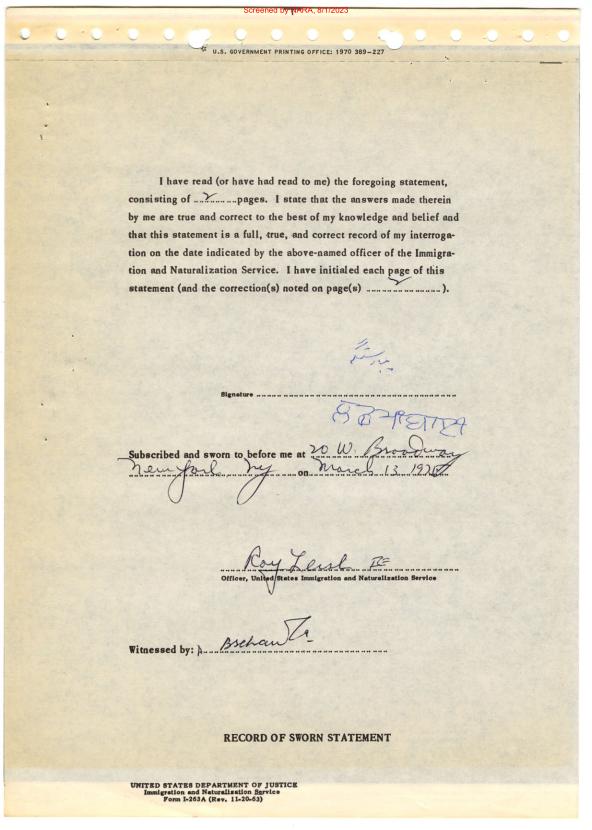 Screened by NARA, 8/1/2023
U.S. GOVERNMENT PRINTING OFFICE: 1970 389-227
I have read (or have had read to me) the foregoing statement,
consisting of 2 pages. I state that the answers made therein
by me are true and correct to the best of my knowledge and belief and
that this statement is a full, true, and correct record of my interroga-
tion on the date indicated by the above-named officer of the Immigra-
tion and Naturalization Service. I have initialed each page of this
statement (and the correction(s) noted on page(s) 2 ).
Signature
Subscribed and sworn to before me at 20 W. Broadway
New York, NY on March 13
Roy
Officer, United States Immigration and Naturalization Service
Witnessed by:
RECORD OF SWORN STATEMENT
UNITED STATES DEPARTMENT OF JUSTICE
Immigration and Naturalization Service
Form I-263A (Rev. 11-20-63)